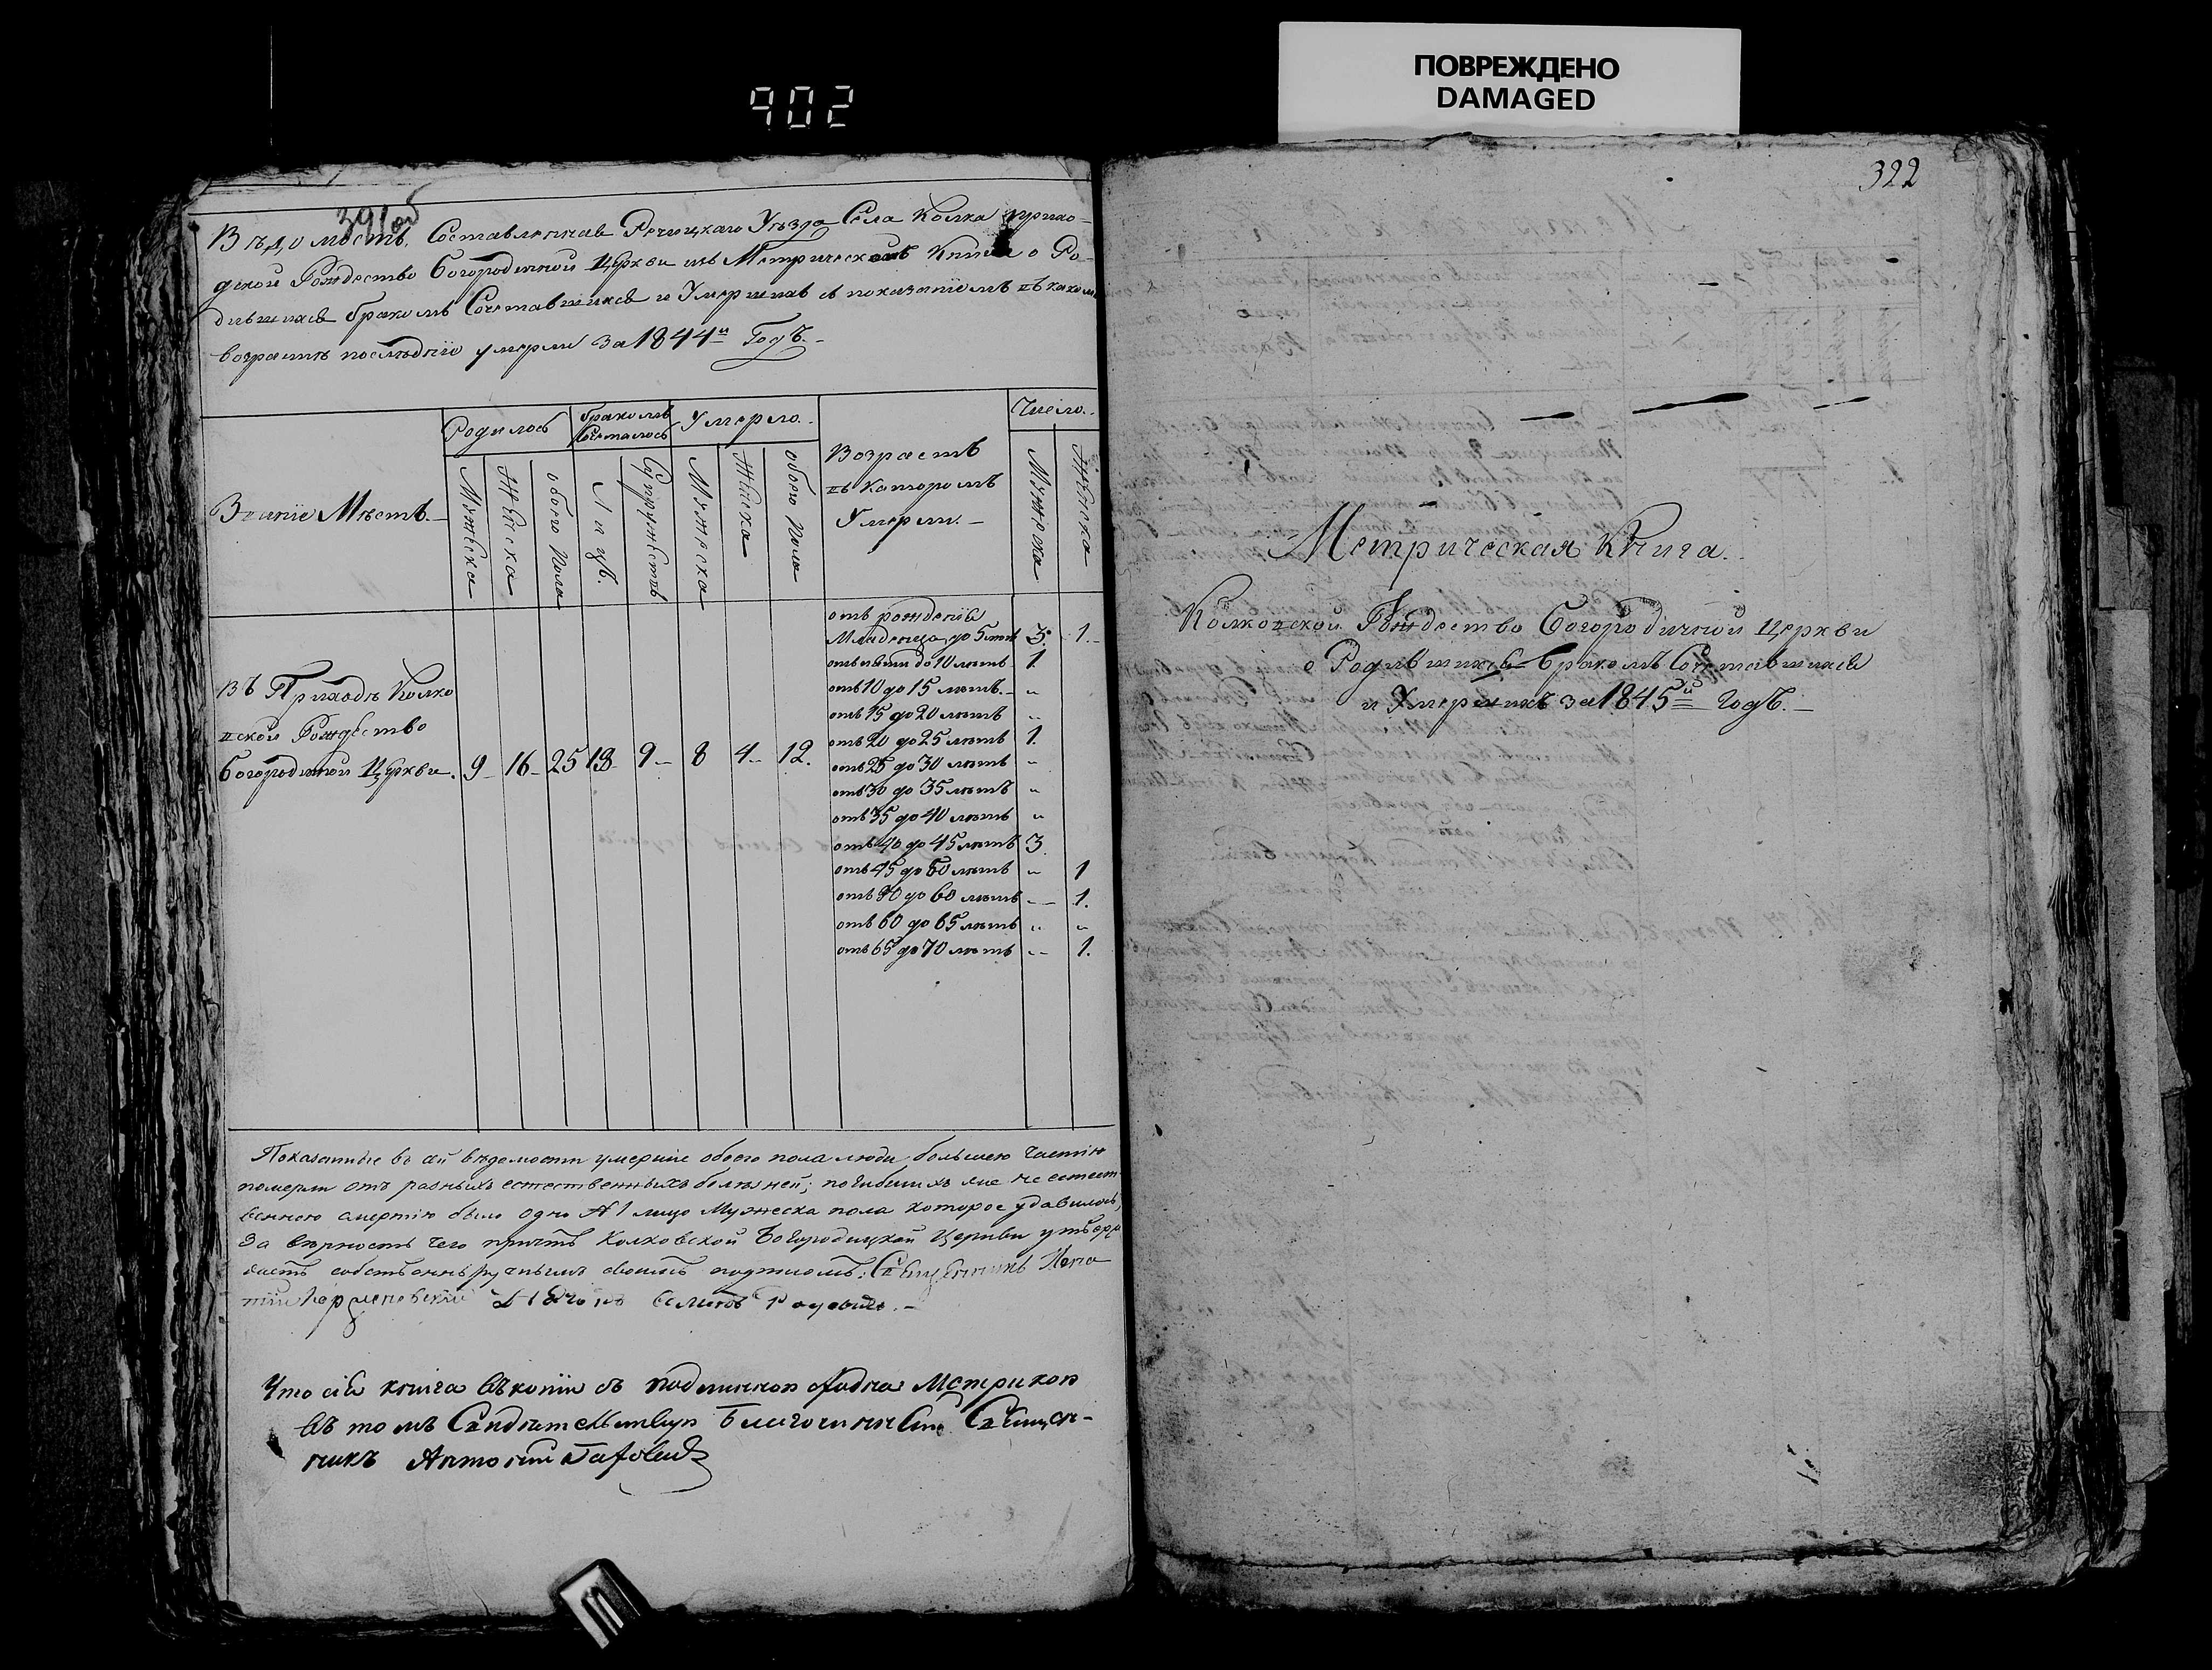 902
ПОВРЕЖДЕНО
DAMAGED
391об
Вѣдомость, Составленная Речицкаго Уѣзда Села Колка прихо-
дской Рождество Богородичной Церкви изъ Метрическихъ Книгъ о Ро-
дившихся бракомъ Сочетавшихся и Умершихъ съ показаніемъ въ какомъ
возрастѣ послѣдніе умерли за 1844й Годъ.-
Званіе Мѣстъ.-
Родилось
бракомъ Сочеталось
Умерло.-
Возрастъ въ которомъ Умерли.-
Число.-
Мужеска
Женска
обоего пола
Лицъ.
Супружествъ
Мужеска
Женска
обоего пола
Мужеска
Женска
Въ Приходѣ Колко
вской Рождество
Богородичной Церкви. 9- 16- 25 18- 9- 8 4- 12.
отъ рожденія
Младенца до 5 лѣтъ 3. 1.-
отъ пяти до 10 лѣтъ 1.
отъ 10 до 15 лѣтъ.- „
отъ 15 до 20 лѣтъ „
отъ 20 до 25 лѣтъ 1.
отъ 25 до 30 лѣтъ „
отъ 30 до 35 лѣтъ „
отъ 35 до 40 лѣтъ „
отъ 40 до 45 лѣтъ 3.
отъ 45 до 50 лѣтъ „ 1
отъ 50 до 60 лѣтъ - 1.
отъ 60 до 65 лѣтъ „ „
отъ 65 до 70 лѣтъ „ 1.
Показанные въ сей вѣдомости умершіе обоего пола люди большею частію
померли отъ разныхъ естественныхъ болѣзней; погибшихъ же не естест-
венною смертію было одно № 1 лицо Мужеска пола которое удавилось,
За вѣрность чего причтъ Колковской Богородицкой Церкви утверж
даетъ собственноручнымъ своимъ подписомъ: Священникъ
Что сія книга въ копіи съ подлинною сходна Метрикою
въ томъ Свидѣтельствую Благочинный Священ-
никъ Антоній
322
Метрическая Книга.
Колковской Рождество Богородичной Церкви
о Родившихся Бракомъ Сочетавшихся
и Умершихъ за 1845й годъ.-